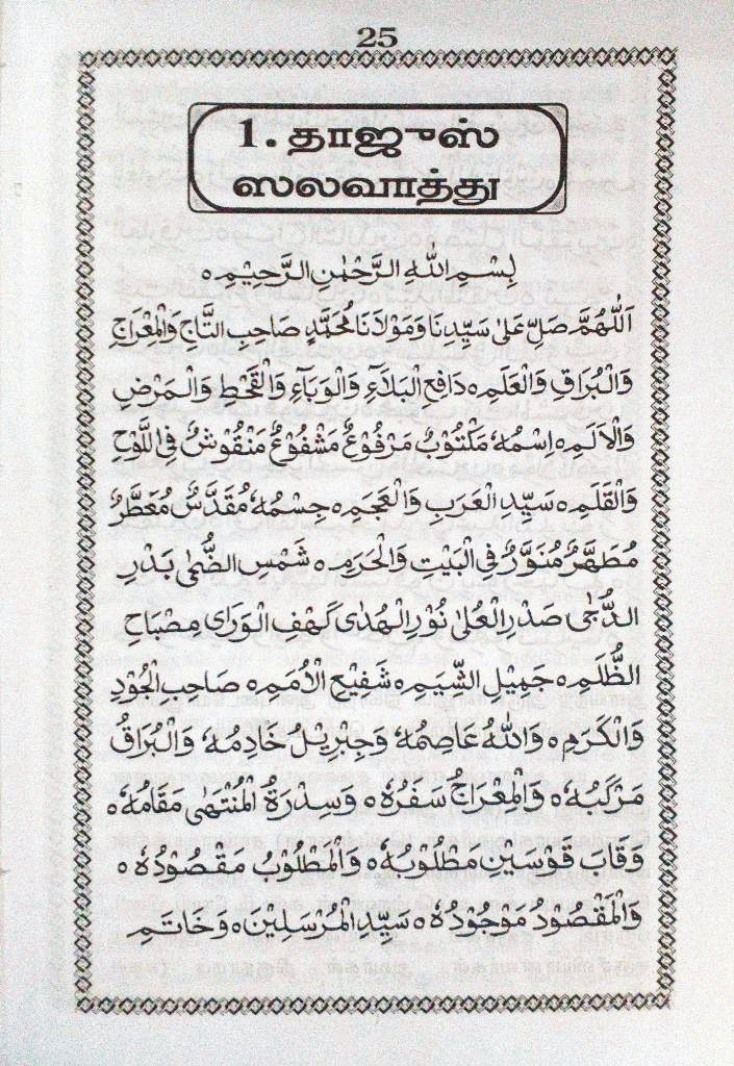 25
1. தாஜுஸ்
ஸலவாத்து
بِسْمِ اللهِ الرَّحْمٰنِ الرَّحِيْمِ ۝
اَللّٰهُمَّ صَلِّ عَلٰى سَيِّدِنَا وَمَوْلَانَا مُحَمَّدٍ صَاحِبِ التَّاجِ وَالْمِعْرَاجِ
وَالْبُرَاقِ وَالْعَلَمِ ۝ دَافِعِ الْبَلَآءِ وَالْوَبَآءِ وَالْقَحْطِ وَالْمَرَضِ
وَالْاَلَمِ ۝ اِسْمُهٗ مَكْتُوْبٌ مَرْفُوْعٌ مَشْفُوْعٌ مَنْقُوْشٌ فِى اللَّوْحِ
وَالْقَلَمِ ۝ سَيِّدِ الْعَرَبِ وَالْعَجَمِ ۝ جِسْمُهٗ مُقَدَّسٌ مُعَطَّرٌ
مُطَهَّرٌ مُنَوَّرٌ فِى الْبَيْتِ وَالْحَرَمِ ۝ شَمْسِ الضُّحٰى بَدْرِ
الدُّجٰى صَدْرِ الْعُلٰى نُوْرِ الْهُدٰى كَهْفِ الْوَرٰى مِصْبَاحِ
الظُّلَمِ ۝ جَمِيْلِ الشِّيَمِ ۝ شَفِيْعِ الْاُمَمِ ۝ صَاحِبِ الْجُوْدِ
وَالْكَرَمِ ۝ وَاللهُ عَاصِمُهٗ وَجِبْرِيْلُ خَادِمُهٗ وَالْبُرَاقُ
مَرْكَبُهٗ ۝ وَالْمِعْرَاجُ سَفَرُهٗ ۝ وَسِدْرَةُ الْمُنْتَهٰى مَقَامُهٗ ۝
وَقَابَ قَوْسَيْنِ مَطْلُوْبُهٗ ۝ وَالْمَطْلُوْبُ مَقْصُوْدُهٗ ۝
وَالْمَقْصُوْدُ مَوْجُوْدُهٗ ۝ سَيِّدِ الْمُرْسَلِيْنَ ۝ وَخَاتَمِ